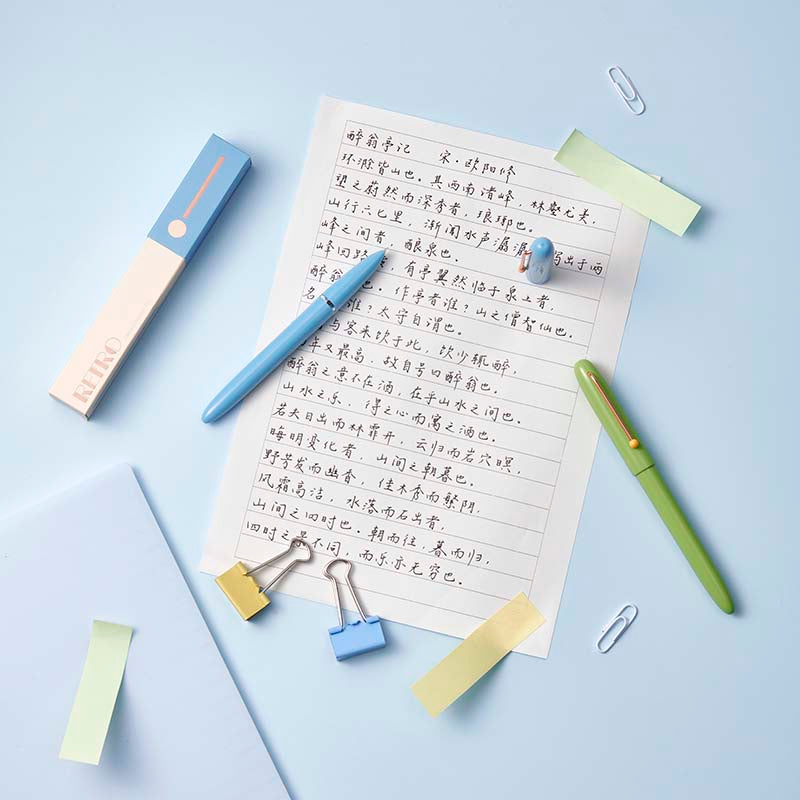 醉翁亭记 宋·欧阳修
环滁皆山也。其西南诸峰，林壑尤美，
望之蔚然而深秀者，琅琊也。
山行六七里，渐闻水声潺 出于两
峰之间者，酿泉也。
峰回路 ，有亭翼然临于泉上者，
醉翁 也。作亭者谁？山之僧智仙也。
名 谁？太守自谓也。
与客来饮于此，饮少辄醉，
年又最高，故自号曰醉翁也。
醉翁之意不在酒，在乎山水之间也。
山水之乐，得之心而寓之酒也。
若夫日出而林霏开，云归而岩穴暝，
晦明变化者，山间之朝暮也。
野芳发而幽香，佳木秀而繁阴，
风霜高洁，水落而石出者，
山间之四时也。朝而往，暮而归，
四时之景不同，而乐亦无穷也。
RETRO